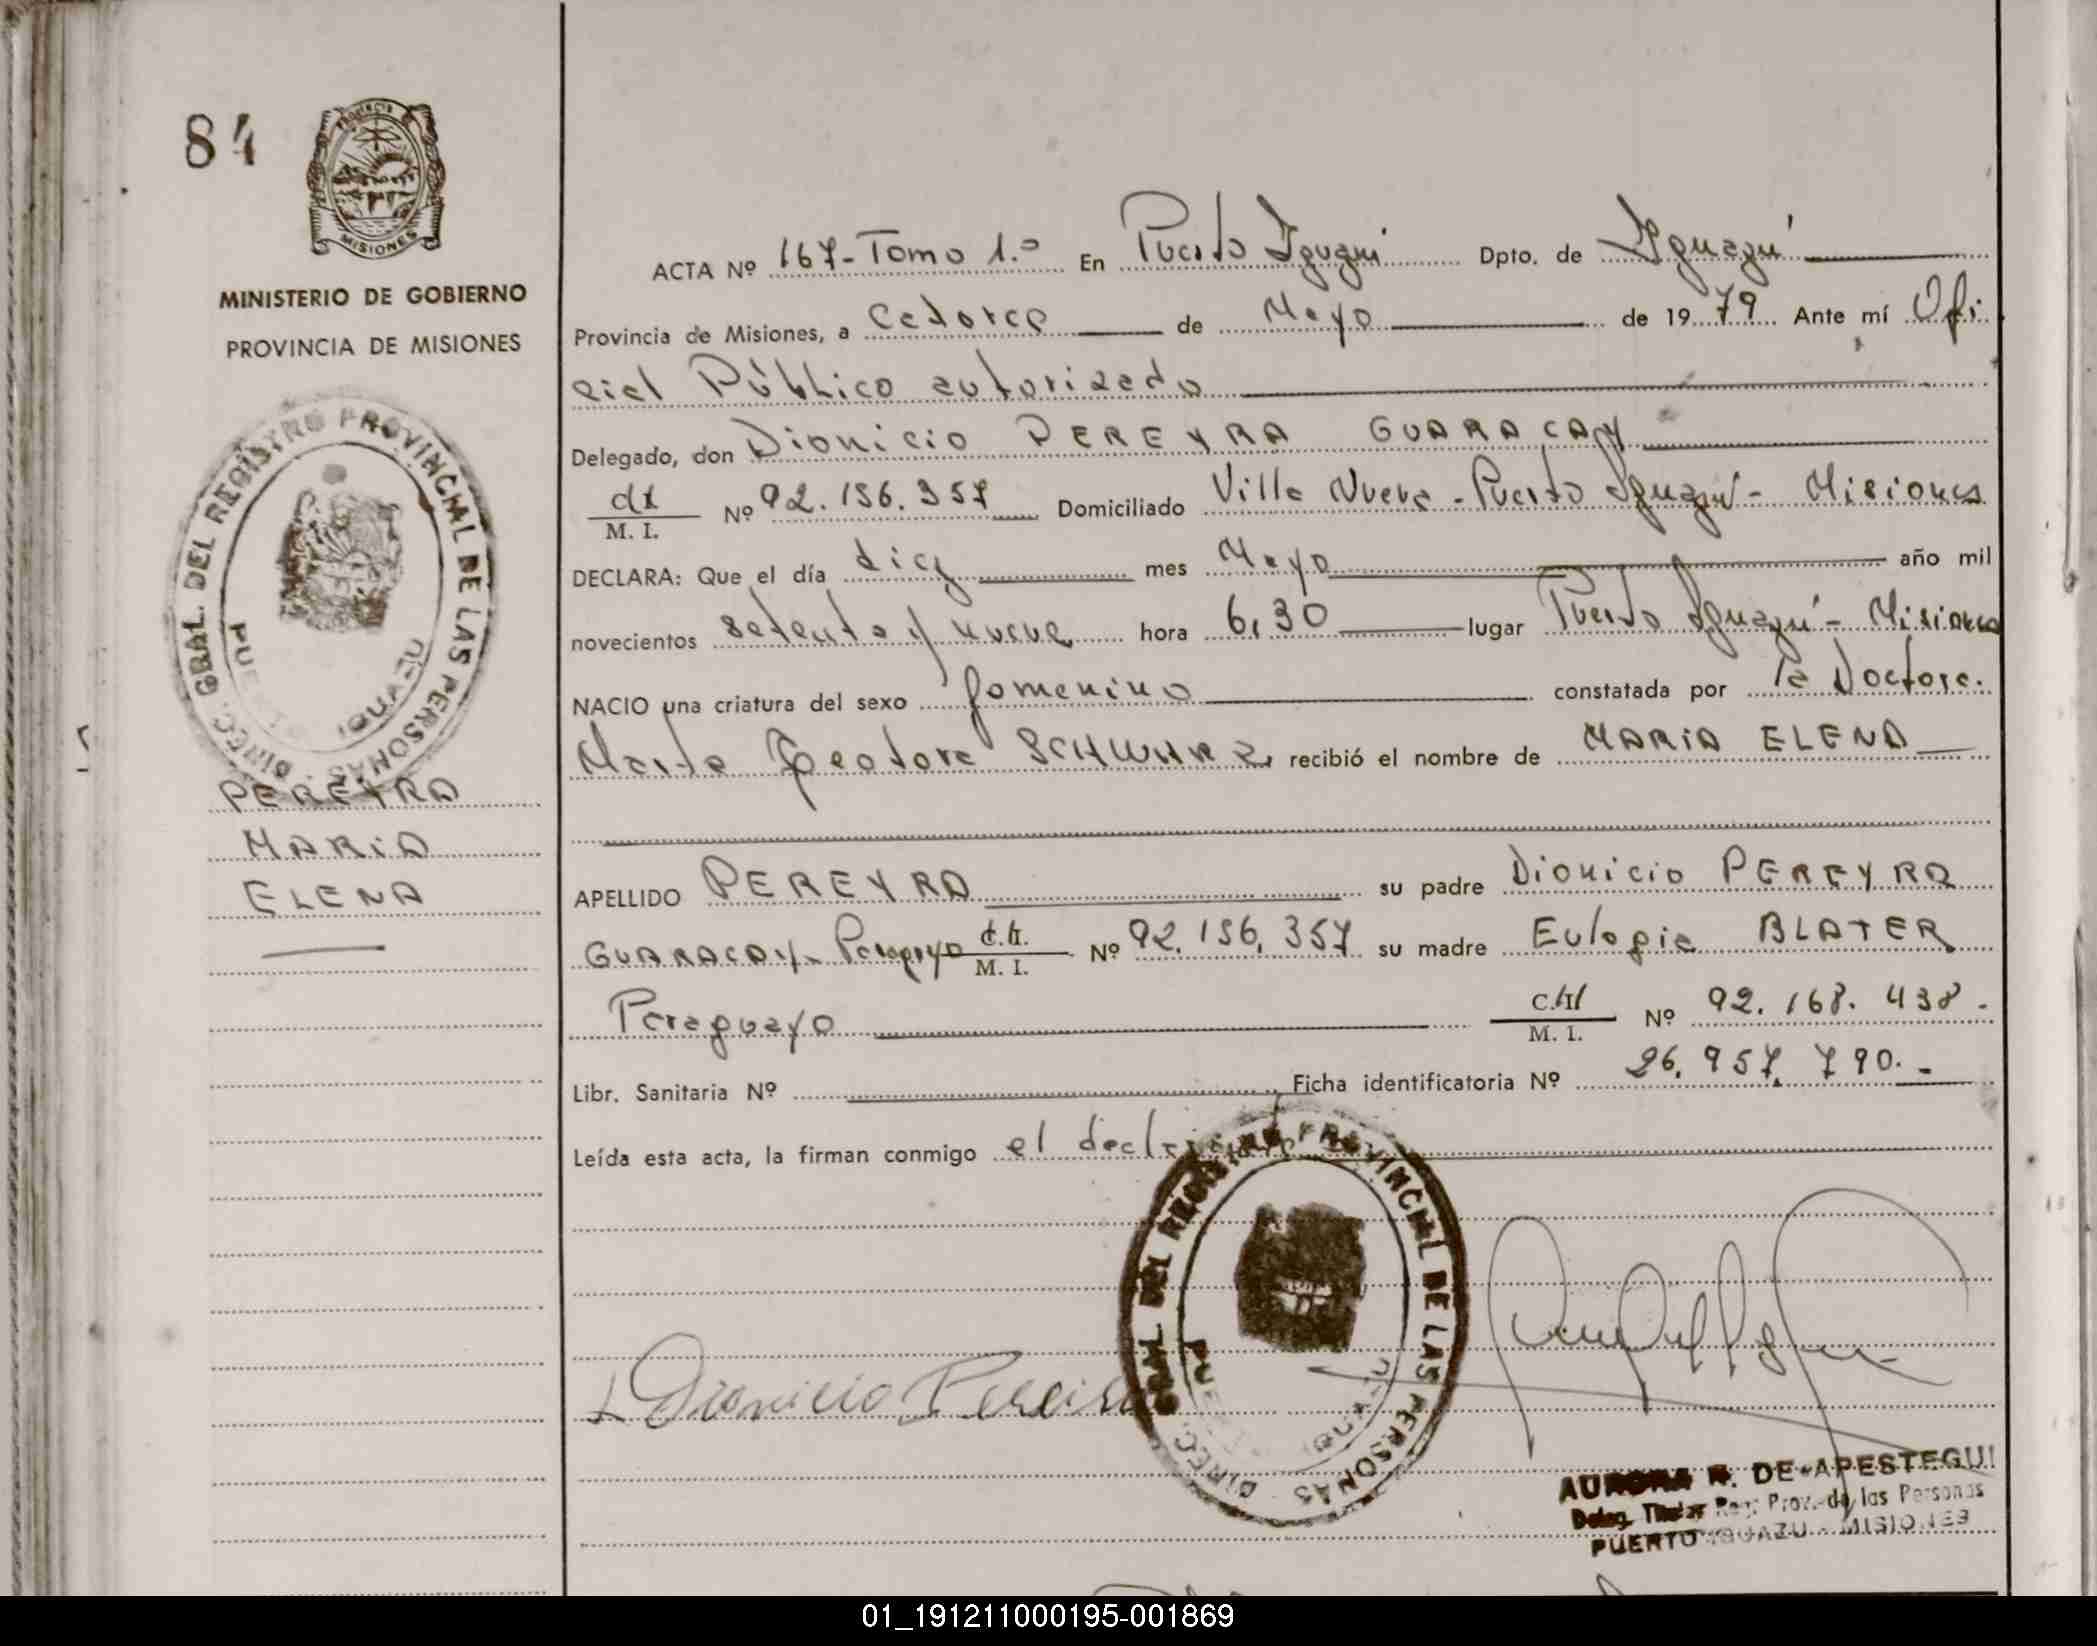 84
Provincia
MISIONES
MINISTERIO DE GOBIERNO
PROVINCIA DE MISIONES
DIREC. GRAL. DEL REGISTRO PROVINCIAL DE LAS PERSONAS
PEREYRA
MARIA
ELENA
ACTA Nº 167-Tomo 1.º En Puerto Iguazú Dpto. de Iguazú
Provincia de Misiones, a Catorce de Mayo de 1979 Ante mí Ofi
cial Público autorizado
Delegado, don Dionicio PEREYRA GUARACAY
M. I. Nº 92.156.357 Domiciliado Villa Nueva - Puerto Iguazú - Misiones
DECLARA: Que el día diez mes Mayo año mil
novecientos setenta y nueve hora 6,30 lugar Puerto Iguazú - Misiones
NACIO una criatura del sexo femenino constatada por la Doctora
Marta Teodora SCHWARZ, recibió el nombre de MARIA ELENA
APELLIDO PEREYRA su padre Dionicio PEREYRA
GUARACAY - Paraguayo C.I. M. I. Nº 92.156.357 su madre Eulogia BLATER
Paraguaya C.I. M. I. Nº 92.168.438.
Libr. Sanitaria Nº Ficha identificatoria Nº 26.957.790.-
Leída esta acta, la firman conmigo el declarante
DIREC. GRAL. DEL REGISTRO PROVINCIAL DE LAS PERSONAS
Dionicio Pereira
AURORA R. DE APESTEGUI
Deleg. Titular Reg. Prov. de las Personas
PUERTO IGUAZU - MISIONES
01_191211000195-001869